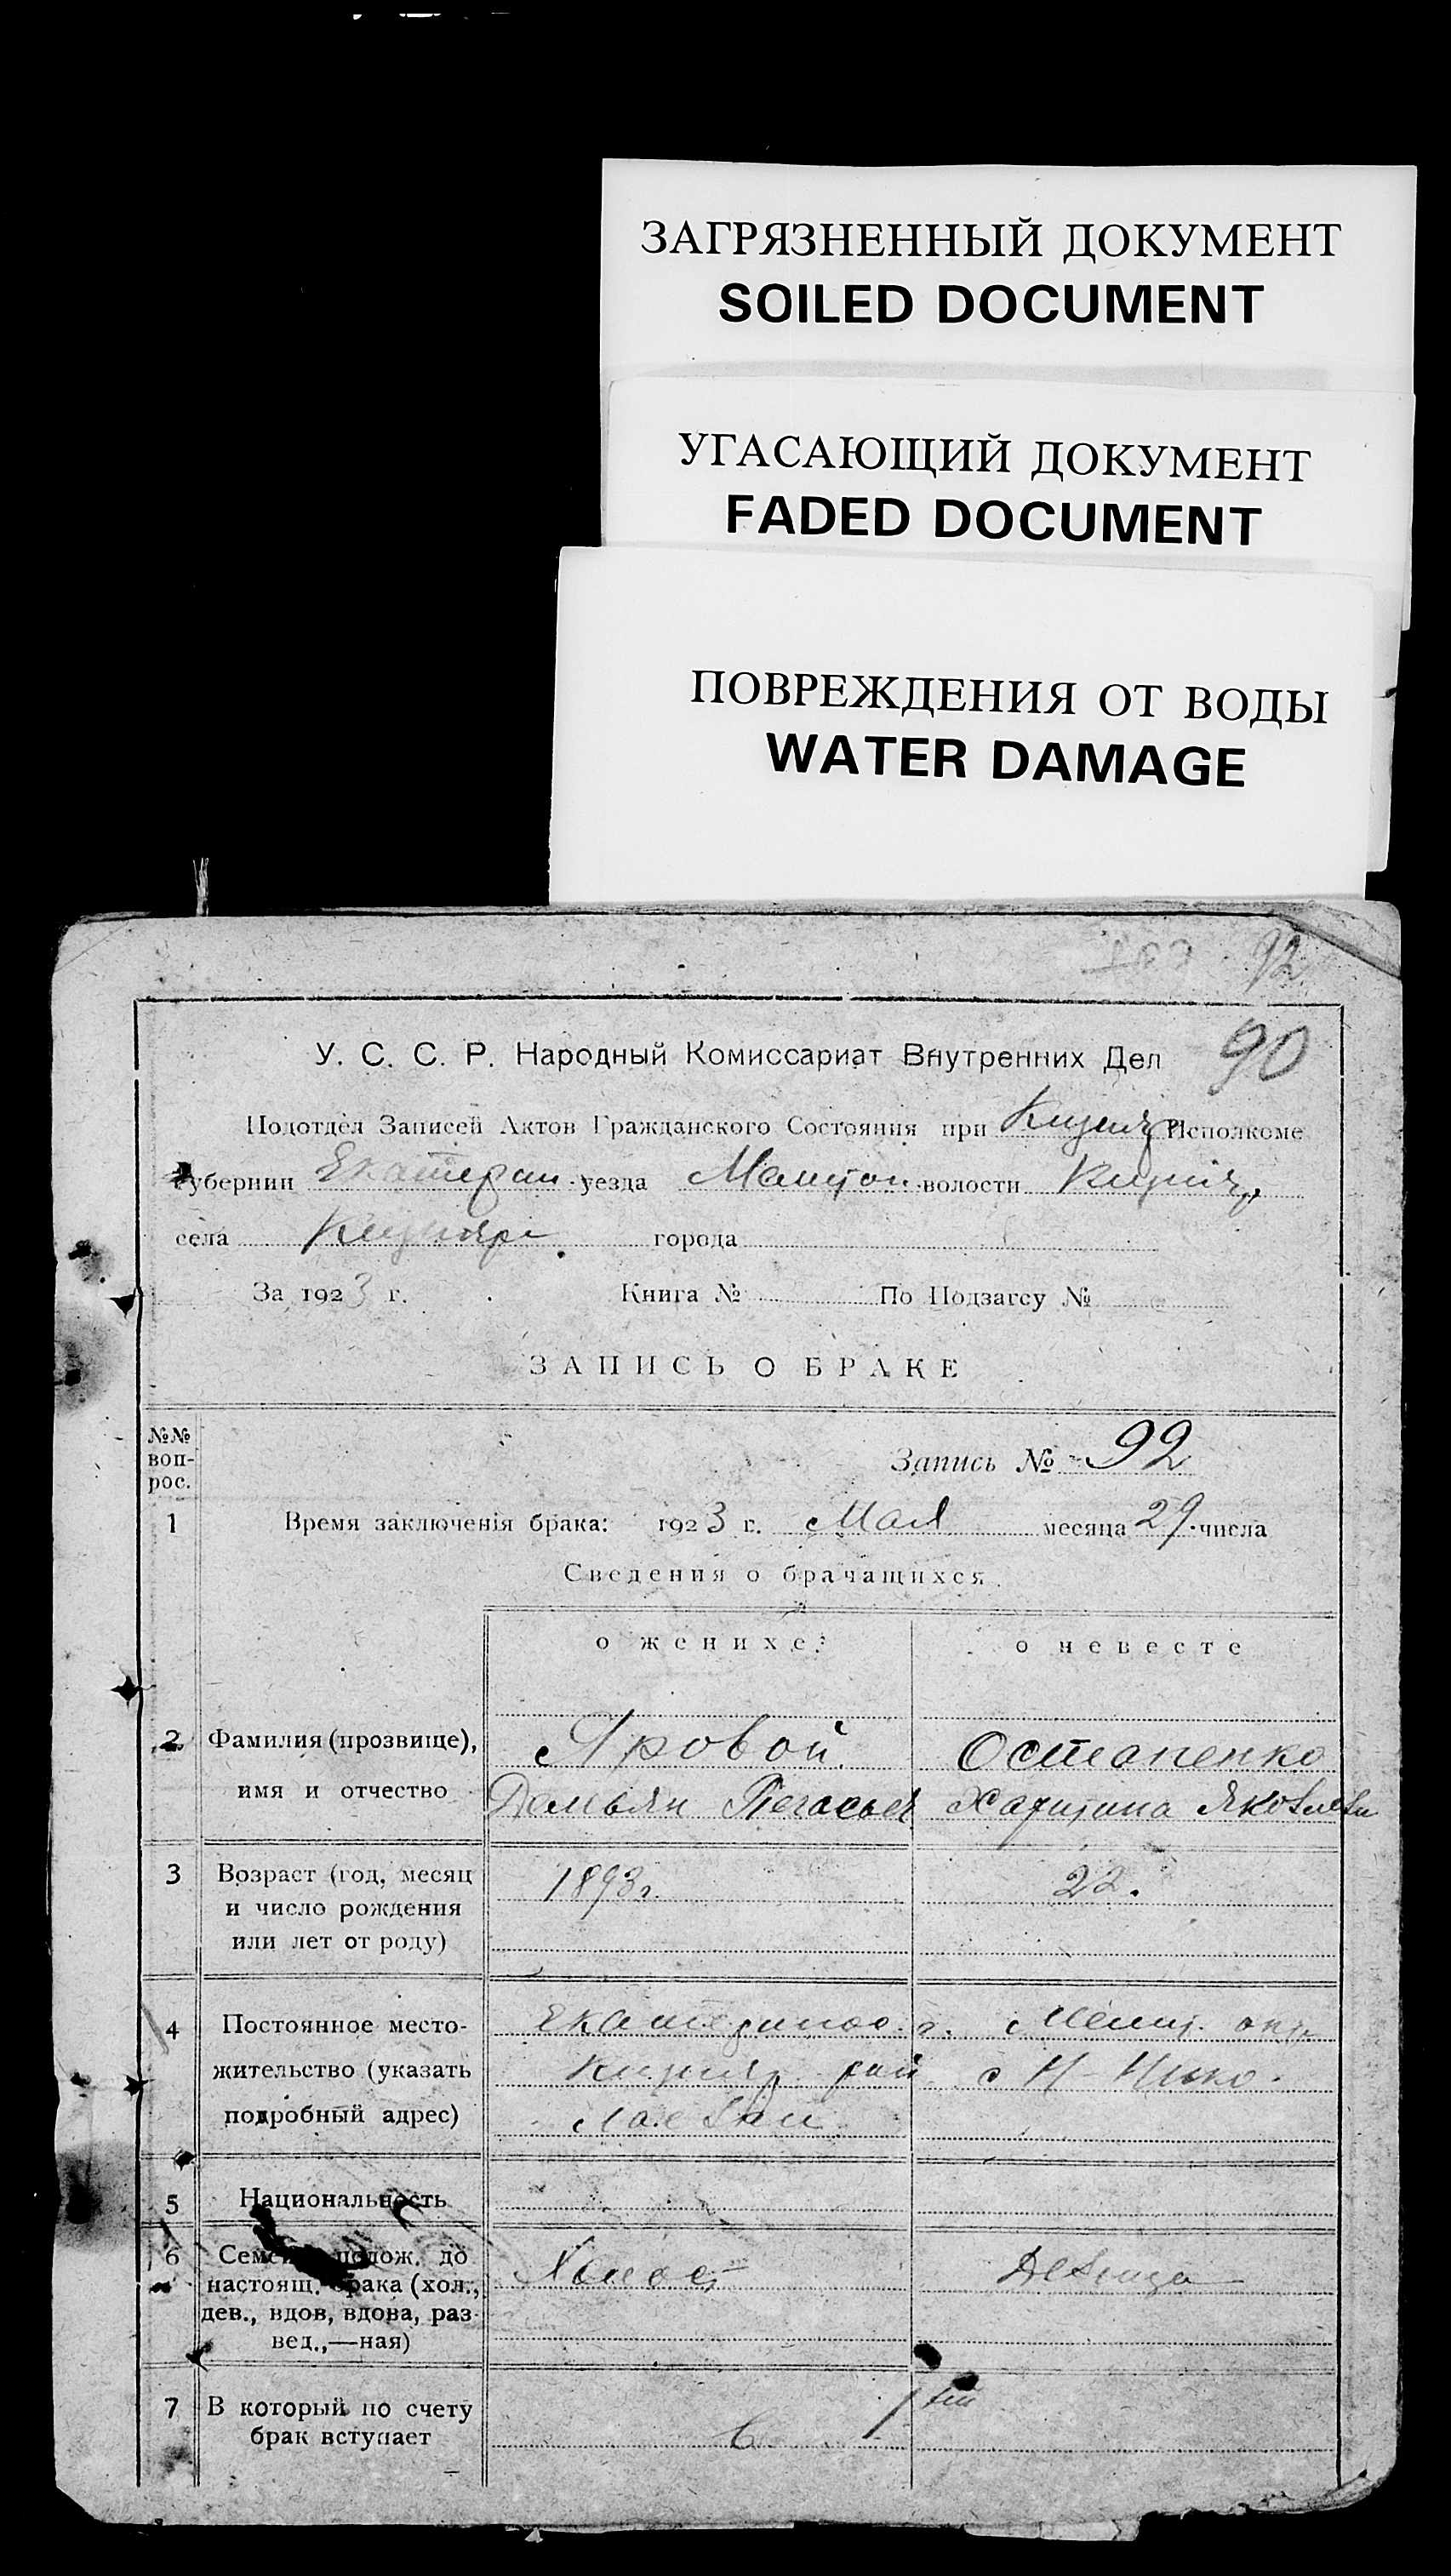 ЗАГРЯЗНЕННЫЙ ДОКУМЕНТ
SOILED DOCUMENT
УГАСАЮЩИЙ ДОКУМЕНТ
FADED DOCUMENT
ПОВРЕЖДЕНИЯ ОТ ВОДЫ
WATER DAMAGE
92
90
У. С. С. Р. Народный Комиссариат Внутренних Дел
Подотдел Записей Актов Гражданского Состояния при Кизияр Исполкоме
Губернии Екатерин уезда Мелитоп волости Кизияр
села Кизияре города
За 1923 г. Книга № По Подзагсу №
ЗАПИСЬ О БРАКЕ
№№ воп-рос.
Запись № 92
1 Время заключенія брака: 1923 г. Мая месяца 29 числа
Сведения о брачащихся
о женихе: о невесте
2 Фамилия (прозвище), Яровой Остапенко
имя и отчество Демьян Харитина Яковлевн
3 Возраст (год, месяц 1893 г. 22.
и число рождения
или лет от роду)
4 Постоянное место- Екатеринос. г. Мелит. окр.
жительство (указать Кизияр. рай с Н-
подробный адрес)
5 Национальность
6 Семейн. полож. до Холост Девица
настоящ. брака (хол.,
дев., вдов, вдова, раз-
вед.,—ная)
7 В который по счету В 1ый
брак вступает